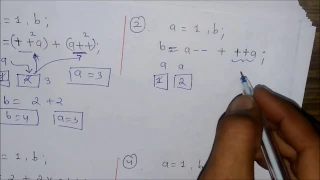 = 1, b;
= (++a) + (a++);
2 2
a
1 2 3 a = 3
b = 2 + 2
b = 4 a = 3
② a = 1, b;
b = a-- + ++a;
a a
1 2
a = 1,